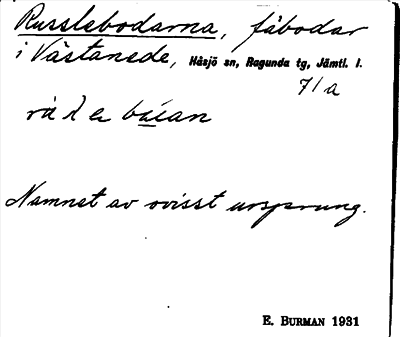 Russlebodarna, fäbodar
i Västanede, Håsjö sn, Ragunda tg, Jämtl. l.
71a
Namnet av ovisst ursprung.
E. BURMAN 1931